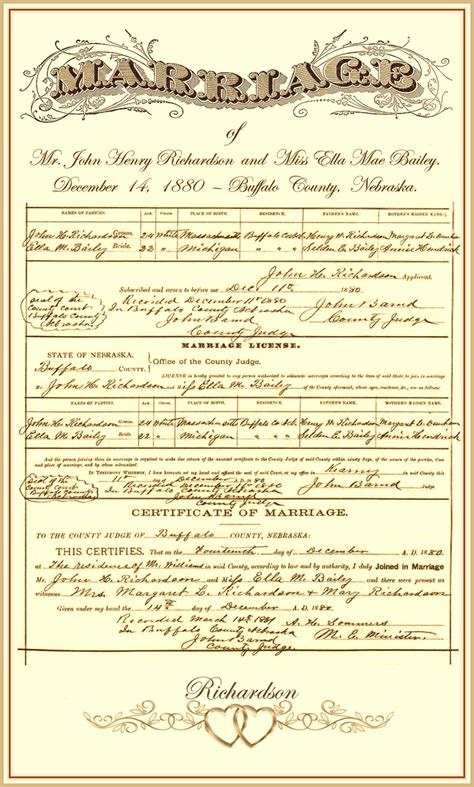 MARRIAGE
of
Mr. John Henry Richardson and Miss Ella Mae Bailey.
December 14, 1880 ~ Buffalo County, Nebraska.
NAMES OF PARTIES. Age. Color. PLACE OF BIRTH. RESIDENCE. FATHER'S NAME. MOTHER'S MAIDEN NAME.
John H. Richardson Groom. 24 White Massachusetts Buffalo Co. Henry W. Richardson Margaret
Ella M. Baily Bride. 22 " Michigan " Selden E. Bailey Annie Hendrick
John H. Richardson Applicant.
Subscribed and sworn to before us Dec 11th 1880.
Seal of the County Court Buffalo County Nebraska
Recorded December 11th 1880
In Buffalo County Nebraska
John Barnd
County Judge
John Barnd
County Judge
MARRIAGE LICENSE.
STATE OF NEBRASKA,
Buffalo COUNTY. Office of the County Judge.
License is hereby granted to any person authorized to solemnize marriages according to laws of said State, to join in marriage
Mr John H. Richardson and Miss Ella M. Baily of the County aforesaid, whose age, residence, &c., are as follows:
NAMES OF PARTIES. Age. Color. PLACE OF BIRTH. RESIDENCE. FATHER'S NAME. MOTHER'S MAIDEN NAME.
John H. Richardson Groom. 24 White Massachusetts Buffalo Co. Henry W. Richardson Margaret
Ella M. Baily Bride. 22 " Michigan " Selden E. Bailey Annie Hendrick
And the person joining them in marriage is required to make due return of the annexed certificate to the County Judge of said County within ninety days, of the names of the parties, time
and place of marriage, and by whom solemnized.
IN TESTIMONY WHEREOF, I have hereunto set my hand and affixed the seal of said Court, at my office in in said County this
11th day of December 1880
Seal of the County Court Buffalo County Nebraska
Recorded December 11th 1880
In Buffalo County Nebraska
John Barnd
County Judge
John Barnd County Judge.
CERTIFICATE OF MARRIAGE.
TO THE COUNTY JUDGE OF Buffalo COUNTY, NEBRASKA:
THIS CERTIFIES, That on the Fourteenth day of December A. D. 1880
at The residence of Mr. in said County, according to law and by authority, I duly Joined in Marriage
Mr. John H. Richardson and Miss Ella M. Bailey and there were present as
witness Mrs. Margaret L. Richardson & Mary Richardson
Given under my hand the 14th day of December A. D. 1880.
Recorded March 14th 1881
In Buffalo County Nebraska
John Barnd
County Judge.
A. H. Sommers
M. E. Minister
Richardson